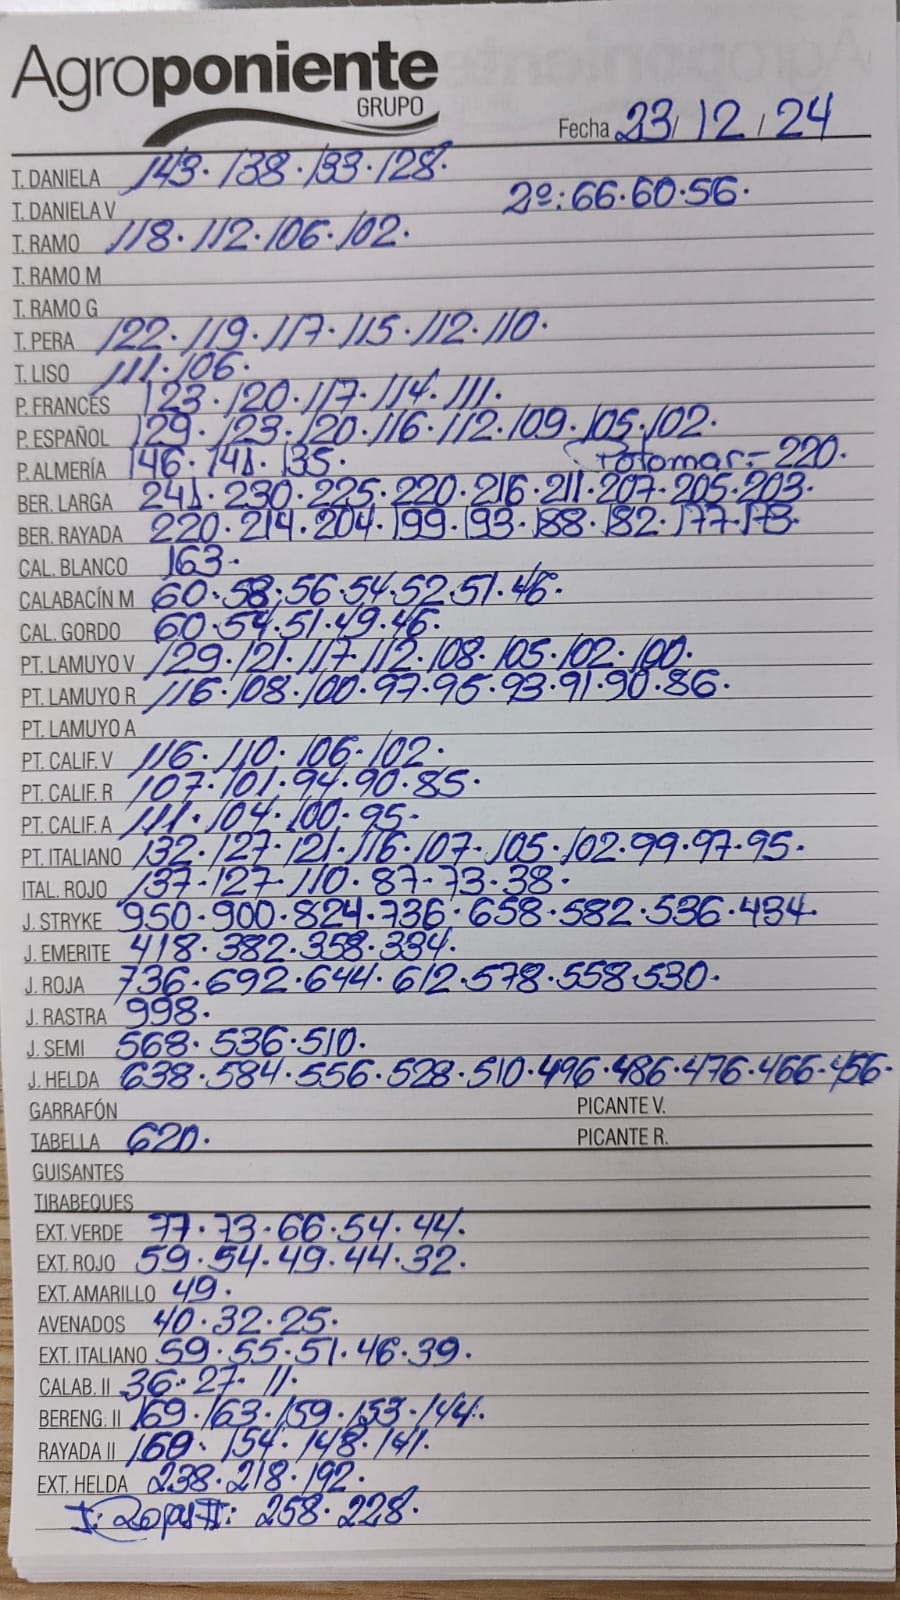 Agroponiente
GRUPO
Fecha 23/12/24
T. DANELA 143·138·133·128·
T. DANIELA V 2º:66·60·56·
T. RAMO 118·112·106·102·
T. RAMO M
T. RAMO G
T. PERA 122·119·117·115·112·110·
T. LISO 111·106·
P. FRANCÉS 123·120·117·114·111·
P. ESPAÑOL 129·123·120·116·112·109·105·102·
P. ALMERÍA 146·141·135· Potomar:-220·
BER. LARGA 241·230·225·220·216·211·207·205·203·
BER. RAYADA 220·214·204·199·193·188·182·177·173·
CAL. BLANCO 163·
CALABACÍN M 60·58·56·54·52·51·46·
CAL. GORDO 60·54·51·49·46·
PT. LAMUYO V 129·121·117·112·108·105·102·100·
PT. LAMUYO R 116·108·100·97·95·93·91·90·86·
PT. LAMUYO A
PT. CALIF. V 116·110·106·102·
PT. CALIF. R 107·101·94·90·85·
PT. CALIF. A 111·104·100·95·
PT. ITALIANO 132·127·121·116·107·105·102·99·97·95·
ITAL. ROJO 137·127·110·87·73·38·
J. STRYKE 950·900·824·736·658·582·536·434·
J. EMERITE 418·382·358·334·
J. ROJA 736·692·644·612·578·558·530·
J. RASTRA 998·
J. SEMI 568·536·510·
J. HELDA 638·584·556·528·510·496·486·476·466·456·
GARRAFÓN PICANTE V.
TABELLA 620· PICANTE R.
GUISANTES
TIRABEQUES
EXT. VERDE 77·73·66·54·44·
EXT. ROJO 59·54·49·44·32·
EXT. AMARILLO 49·
AVENADOS 40·32·25·
EXT. ITALIANO 59·55·51·46·39·
CALAB. II 36·27·11·
BERENG. II 169·163·159·153·144·
RAYADA II 160·154·148·141·
EXT. HELDA 238·218·192·
II: 258·228·